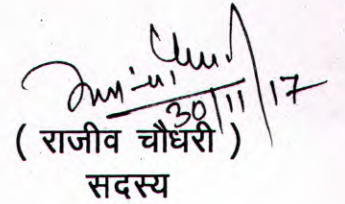 30/11/17
( राजीव चौधरी )
सदस्य